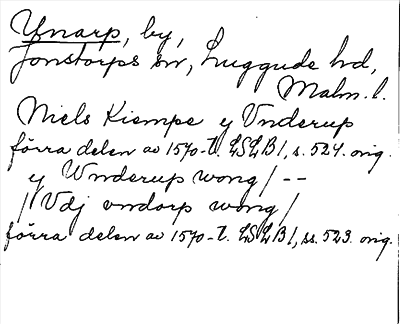 Ynarp, by,
Jonstorps sn, Luggude hd,
Malm. l.
Niels Kiempe y Vnderup
förra delen av 1570-t. LSLB 1, s. 524. orig.
y Wnderup wong / --
/ Vdj vndorp wong /
förra delen av 1570-t. LSLB 1, ss. 523. orig.